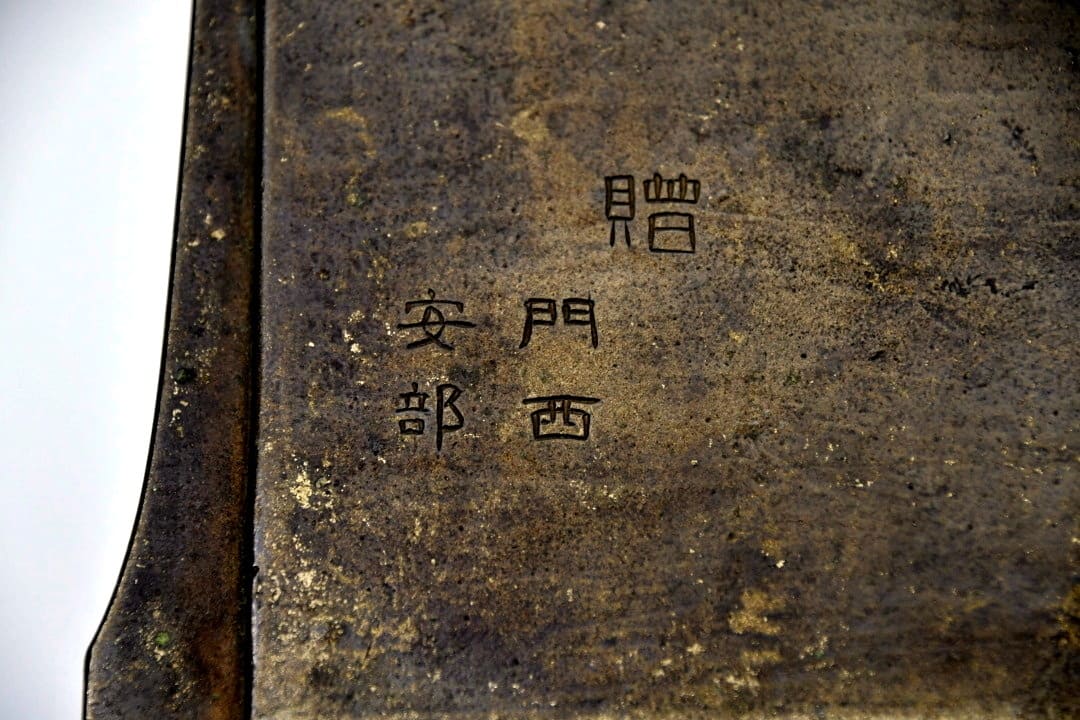 贈
門西
安部